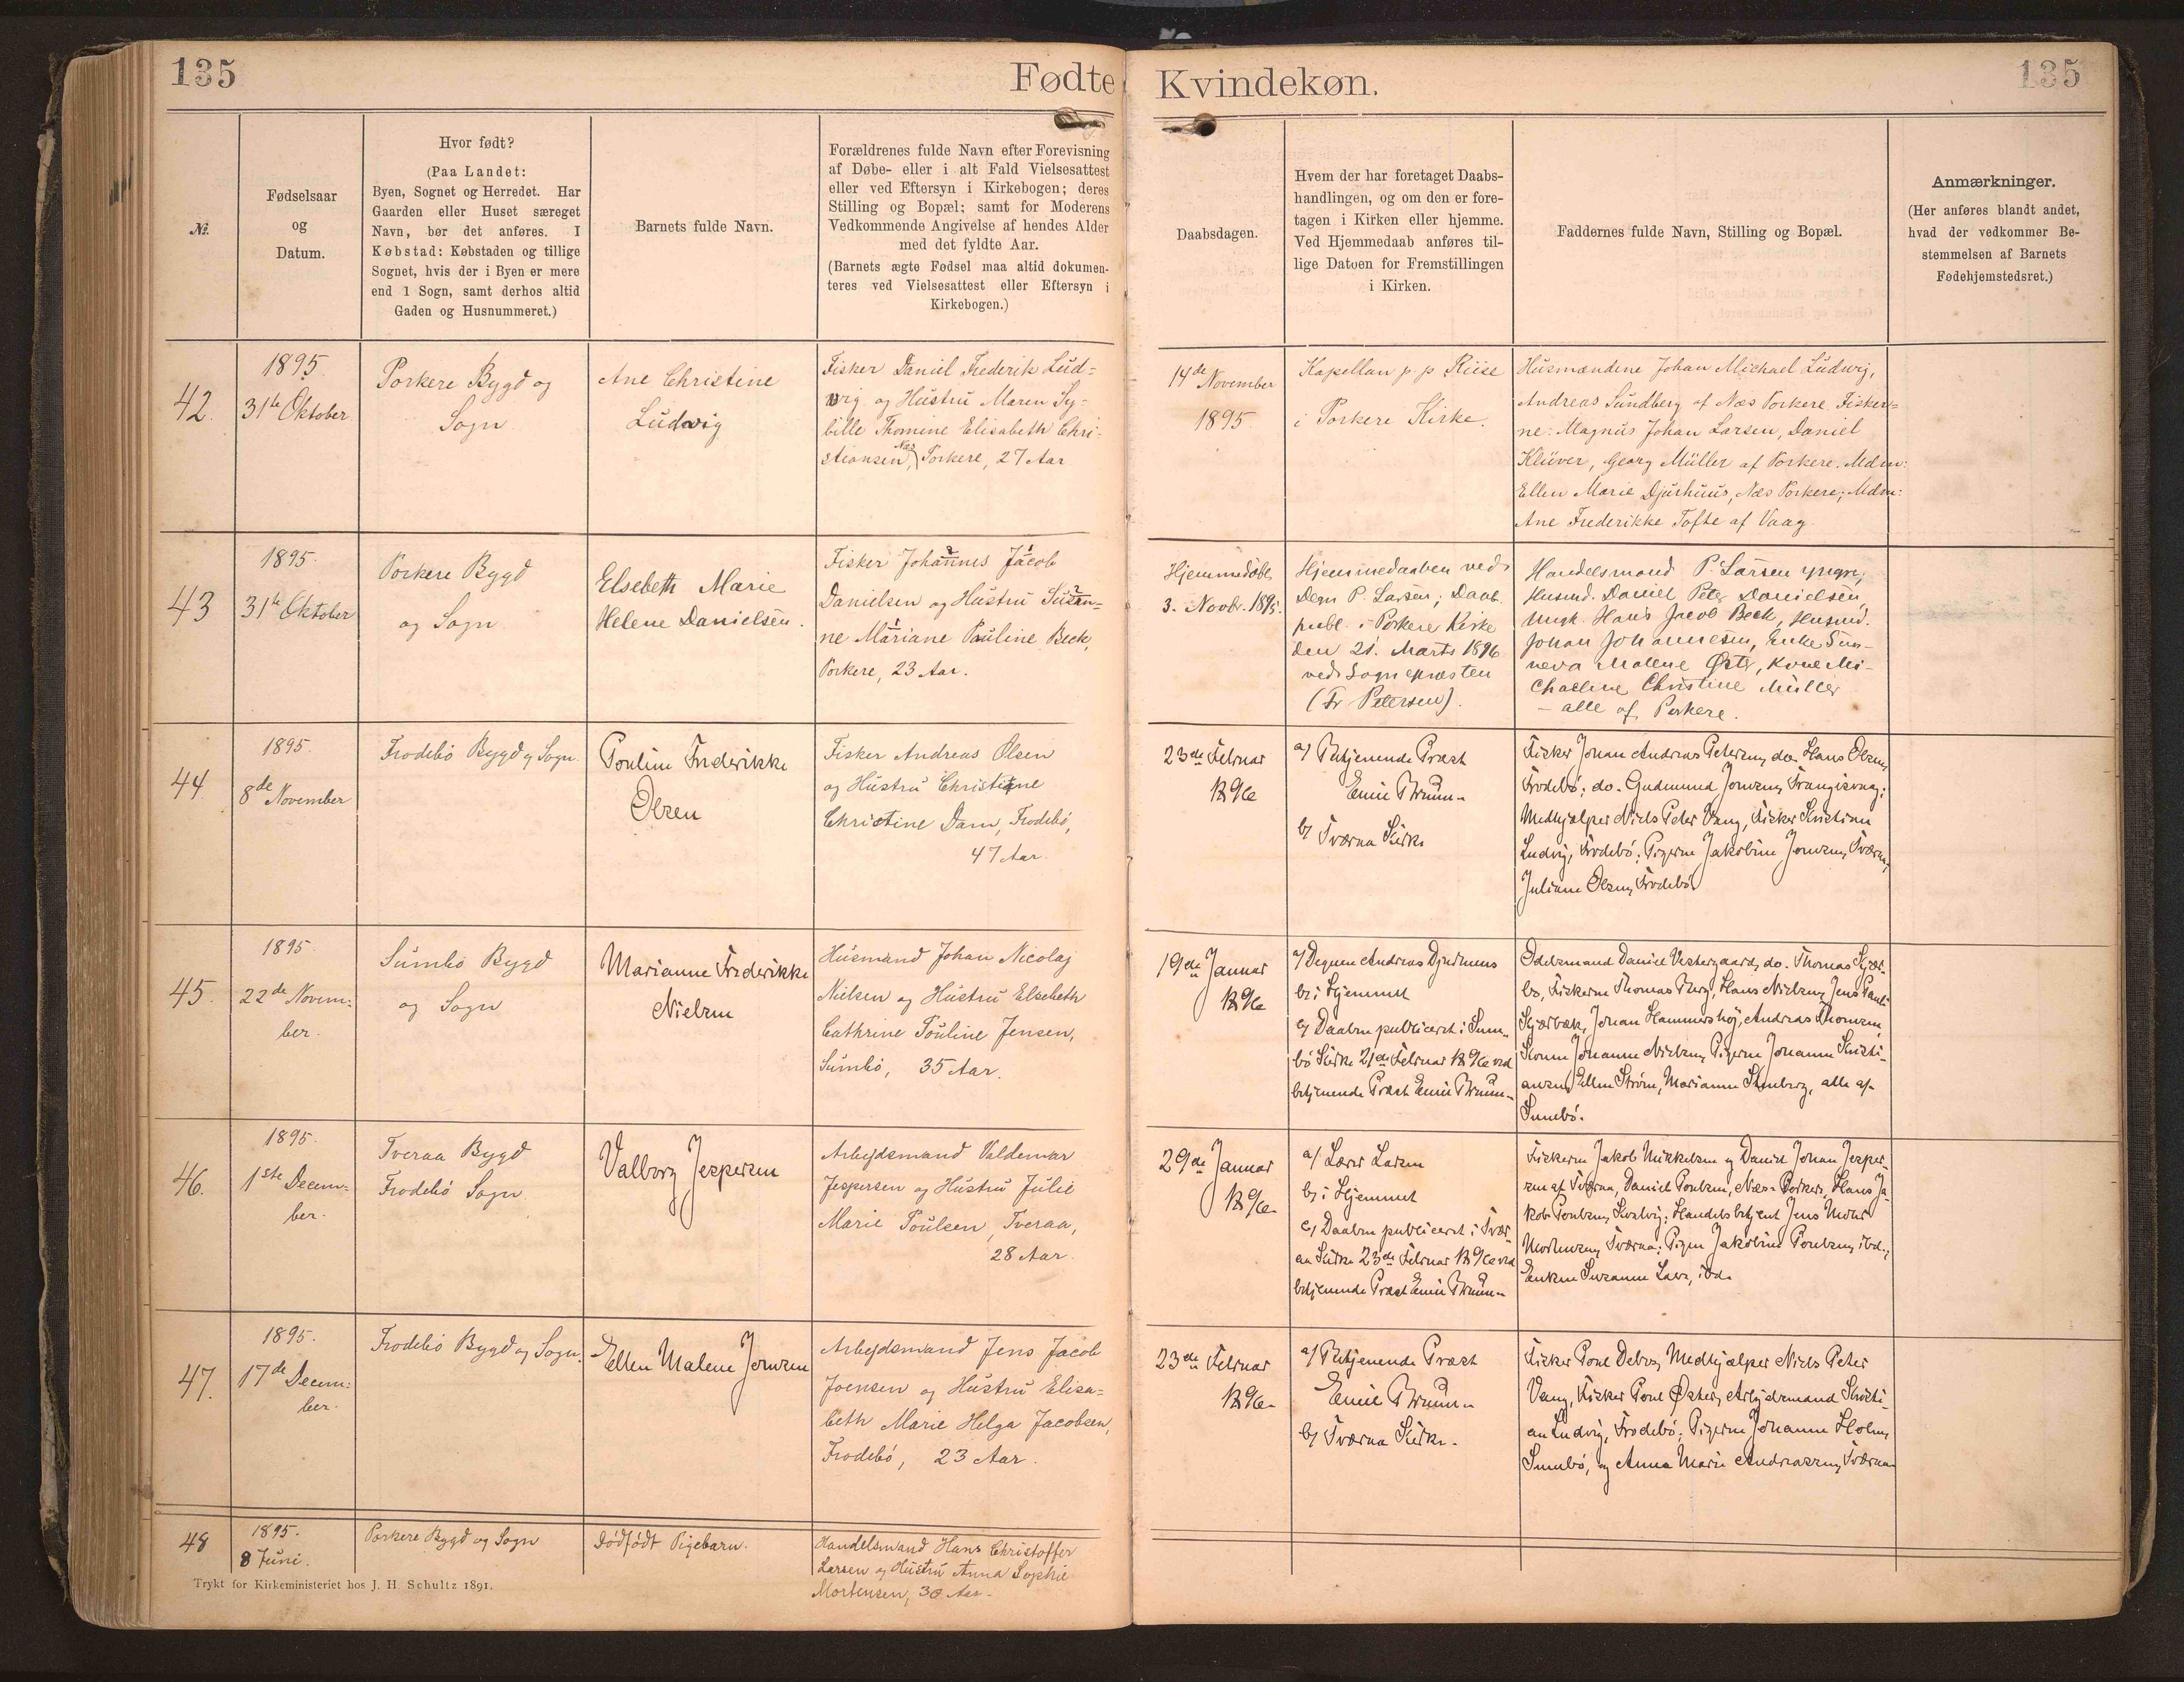 135
Fødte
Kvindekøn.
135
№.
Fødselsaar
og
Datum.
Hvor født?
(Paa Landet:
Byen, Sognet og Herredet. Har
Gaarden eller Huset særeget
Navn, bør det anføres. I
Købstad: Købstaden og tillige
Sognet, hvis der i Byen er mere
end 1 Sogn, samt derhos altid
Gaden og Husnummeret.)
Barnets fulde Navn.
Forældrenes fulde Navn efter Forevisning
af Døbe- eller i alt Fald Vielsesattest
eller ved Eftersyn i Kirkebogen; deres
Stilling og Bopæl; samt for Moderens
Vedkommende Angivelse af hendes Alder
med det fyldte Aar.
(Barnets ægte Fødsel maa altid dokumen-
teres ved Vielsesattest eller Eftersyn i
Kirkebogen.)
Daabsdagen.
Hvem der har foretaget Daabs-
handlingen, og om den er fore-
tagen i Kirken eller hjemme.
Ved Hjemmedaab anføres til-
lige Datoen for Fremstillingen
i Kirken.
Faddernes fulde Navn, Stilling og Bopæl.
Anmærkninger.
(Her anføres blandt andet,
hvad der vedkommer Be-
stemmelsen af Barnets
Fødehjemstedsret.)
42.
1895.
31te Oktober
Porkere Bygd og
Sogn
Ane Christine
Ludwig
Fisker Daniel Frederik Lud=
wig og Hustru Maren Sy=
bille Thomine Elisabeth Chri-
stiansen, Næs Porkere, 27 Aar
14de November
1895
Kapellan p. p. Riise
i Porkere Kirke.
Husmændene Johan Michael Ludwig,
Andreas Sundberg af Næs Porkere. Fisker=
ne: Magnus Johan Larsen, Daniel
Klüver, Georg Müller af Porkere. Mdm:
Ellen Marie Djurhuus, Næs Porkere; Mdm:
Ane Frederikke Tofte af Vaag.
43
1895.
31te Oktober
Porkere Bygd
og Sogn
Elsebeth Marie
Helene Danielsen.
Fisker Johannes Jacob
Danielsen og Hustru Susan=
ne Mariane Pauline Beck,
Porkere, 23 Aar.
Hjemmedøbt
3. Novbr. 1895.
Hjemmedaaben ved
Degn P. Larsen; Daab.
publ. i Porkere Kirke
den 21. Marts 1896
ved Sognepræsten
(Fr Petersen).
Handelsmand P. Larsen yngre,
Husmd. Daniel Peter Danielsen,
Ungk. Hans Jacob Beck, Husmd.
Johan Johannesen, Enke Sun-
neva Malene Øster, Kone Mi-
chaeline Christine Müller
- alle af Porkere.
44
1895.
8de November
Frodebø Bygd og Sogn.
Pouline Frederikke
Olsen
Fisker Andreas Olsen
og Hustru Christiane
Christine Dam, Frodebø,
47 Aar.
23de Februar
1896
a/ Betjenende Præst
Emil Bruun.
b/ Tværaa Kirke
Fisker Johan Andreas Petersen, do. Hans Olsen,
Frodebø; do. Gudmund Joensen, Trangisvaag;
Medhjælper Niels Peter Vang, Fisker Kristian
Ludvig, Frodebø; Pigerne Jakobine Joensen, Tværaa,
Juliane Olsen, Frodebø
45.
1895
22de Novem=
ber.
Sumbø Bygd
og Sogn
Marianne Frederikke
Nielsen
Husmand Johan Nicolaj
Nielsen og Hustru Elsebeth
Cathrine Pouline Jensen,
Sumbø, 35 Aar.
19de Januar
1896
a/ Degnen Andreas Djurhuus
b/ i Hjemmet
c/ Daaben publiceret i Sum-
bø Kirke 21de Februar 1896 ved
betjenende Præst Emil Bruun.
Odelsmand Daniel Vestergaard, do. Thomas Kjær-
bo, Fiskerne Thomas Berg, Hans Nielsen, Jens Pauli
Kjærbæk, Johan Hammershøj, Andreas Thomsen,
Konen Johanne Nielsen, Pigerne Johanne Kristi-
ansen, Ellen Strøm, Marianne Stenberg, alle af
Sumbø.
46.
1895.
1ste Decem=
ber.
Tveraa Bygd
Frodebø Sogn.
Valborg Jespersen
Arbejdsmand Valdemar
Jespersen og Hustru Julie
Marie Poulsen, Tveraa,
28 Aar.
29de Januar
1896.
a/ Lærer Larsen
b/ i Hjemmet
c/ Daaben publiceret i Tvær-
aa Kirke 23de Februar 1896 ved
betjenende Præst Emil Bruun.
Fiskerne Jakob Mikkelsen og Daniel Johan Jesper-
sen af Tværaa, Daniel Poulsen, Næs-Porkere, Hans Ja-
kob Poulsen, Kvalvig; Handelsbetjent Jens
Mortensen, Tværaa; Pigen Jakobine Poulsen, ibd.;
Enken Susanne, ibd.
47.
1895.
17de Decem=
ber.
Frodebø Bygd og Sogn.
Ellen Malene Joensen
Arbejdsmand Jens Jacob
Joensen og Hustru Elisa=
beth Marie Helga Jacobsen,
Frodebø, 23 Aar.
23de Februar
1896.
a/ Betjenende Præst
Emil Bruun.
b/ Tværaa Kirke.
Fisker Poul Debes, Medhjælper Niels Peter
Vang, Fisker Poul Øster, Arbejdsmand Kristi-
an Ludvig, Frodebø; Pigerne Johanne Holm,
Sumbø, og Anna Marie Andreasen, Tværaa
48
1895.
8 Juni.
Porkere Bygd og Sogn
Dødfødt Pigebarn.
Handelsmand Hans Christoffer
Larsen og Hustru Anna Sophie
Mortensen, 30 Aar.
Trykt for Kirkeministeriet hos J. H. Schultz 1891.